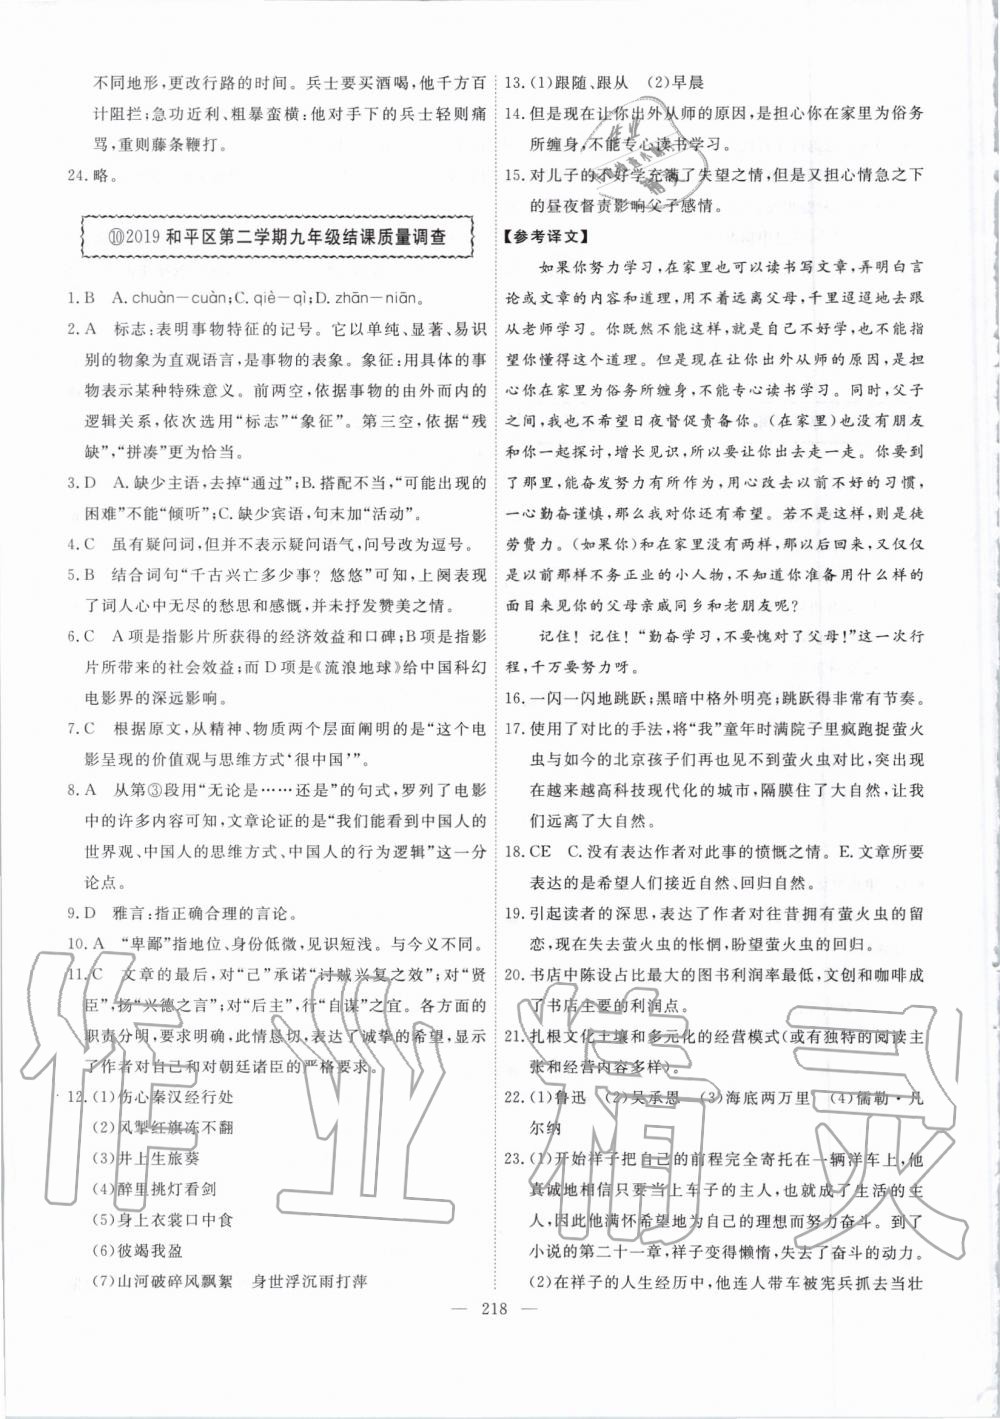 不同地形,更改行路的时间。兵士要买酒喝,他千方百
计阻拦;急功近利、粗暴蛮横:他对手下的兵士轻则痛
骂,重则藤条鞭打。
24. 略。
⑩2019 和平区第二学期九年级结课质量调查
1. B　A. chuàn—cuàn;C. qiè—qì;D. zhān—niān。
2. A　标志:表明事物特征的记号。它以单纯、显著、易识
别的物象为直观语言,是事物的表象。象征:用具体的事
物表示某种特殊意义。前两空,依据事物的由外而内的
逻辑关系,依次选用“标志”“象征”。第三空,依据“残
缺”,“拼凑”更为恰当。
3. D　A. 缺少主语,去掉“通过”;B. 搭配不当,“可能出现的
困难”不能“倾听”;C. 缺少宾语,句末加“活动”。
4. C　虽有疑问词,但并不表示疑问语气,问号改为逗号。
5. B　结合词句“千古兴亡多少事?悠悠”可知,上阕表现
了词人心中无尽的愁思和感慨,并未抒发赞美之情。
6. C　A 项是指影片所获得的经济效益和口碑;B 项是指影
片所带来的社会效益;而 D 项是《流浪地球》给中国科幻
电影界的深远影响。
7. C　根据原文,从精神、物质两个层面阐明的“这个电
影呈现的价值观与思维方式‘很中国’”。
8. A　从第③段用“无论是……还是”的句式,罗列了电影
中的许多内容可知,文章论证的是“我们能看到中国人的
世界观、中国人的思维方式、中国人的行为逻辑”这一分
论点。
9. D　雅言:指正确合理的言论。
10. A　“卑鄙”指地位、身份低微,见识短浅。与今义不同。
11. C　文章的最后,对“己”承诺“讨贼兴复之效”;对“贤
臣”,扬“兴德之言”;对“后主”,行“自谋”之宜。各方面的
职责分明,要求明确,此情恳切,表达了诚挚的希望,显示
了作者对自己和对朝廷诸臣的严格要求。
12. (1)伤心秦汉经行处
(2)风掣红旗冻不翻
(3)井上生旅葵
(4)醉里挑灯看剑
(5)身上衣裳口中食
(6)彼竭我盈
(7)山河破碎风飘絮　身世浮沉雨打萍
13. (1)跟随、跟从　(2)早晨
14. 但是现在让你出外从师的原因,是担心你在家里为俗务
所缠身,不能专心读书学习。
15. 对儿子的不好学充满了失望之情,但又担心情急之下
的昼夜督责影响父子感情。
【参考译文】
如果你努力学习,在家里也可以读书写文章,弄明白言
论或文章的内容和道理,用不着远离父母,千里迢迢地去跟
从老师学习。你既然不能这样,就是自己不好学,也不能指
望你懂得这个道理。但是现在让你出外从师的原因,是担
心你在家里为俗务所缠身,不能专心读书学习。同时,父子
之间,也不希望日夜督促责备你。(在家里)也没有朋友
和你一起探讨,增长见识,所以要让你出去走一走。你到了
那里,能奋发努力有所作为,一定要改去以前不好的习惯,
一心勤奋谨慎,那么我对你还有希望。若不是这样,则是徒
劳费力。(如果你)和在家里没有两样,那以后回来,又只
不过是以前那样不务正业的小人物,不知道你准备用什么样的
面目来见你的父母亲戚同乡和老朋友呢?
记住!记住!“勤奋学习,不要愧对了父母!”这一次行
程,千万要努力呀。
16. 一闪一闪地跳跃;黑暗中格外明亮;跳跃得非常有节奏。
17. 使用了对比的手法,将“我”童年时满院子里疯跑捉萤火
虫与如今的北京孩子们见不到萤火虫作对比,突出现代
在越来越高科技现代化的城市,隔膜住了大自然,让我
们远离了大自然。
18. CE　C. 没有表达作者对此事的愤慨之情。E. 文章所要
表达的是希望人们接近自然、回归自然。
19. 引起读者的深思,表达了作者对往昔拥有萤火虫的留
恋,现在失去萤火虫的怅惘,盼望萤火虫的回归。
20. 书店中陈设占比最大的图书利润率最低,文创和咖啡成
了书店主要的利润点。
21. 扎根文化土壤和多元化的经营模式(或有独特的阅读主
张和经营内容多样)。
22. (1)鲁迅　(2)吴承恩　(3)海底两万里　(4)儒勒·凡
尔纳
23. (1)开始祥子把自己的前程完全寄托在一辆洋车上,他
真诚地相信只要当上车子的主人,也就成了生活的主
人,因此他满怀希望地为自己的理想而努力奋斗。到了
小说的第二十一章,祥子变得懒惰,失去了奋斗的动力。
(2)在祥子的人生经历中,他连人带车被宪兵抓去当壮
— 218 —
作业精灵